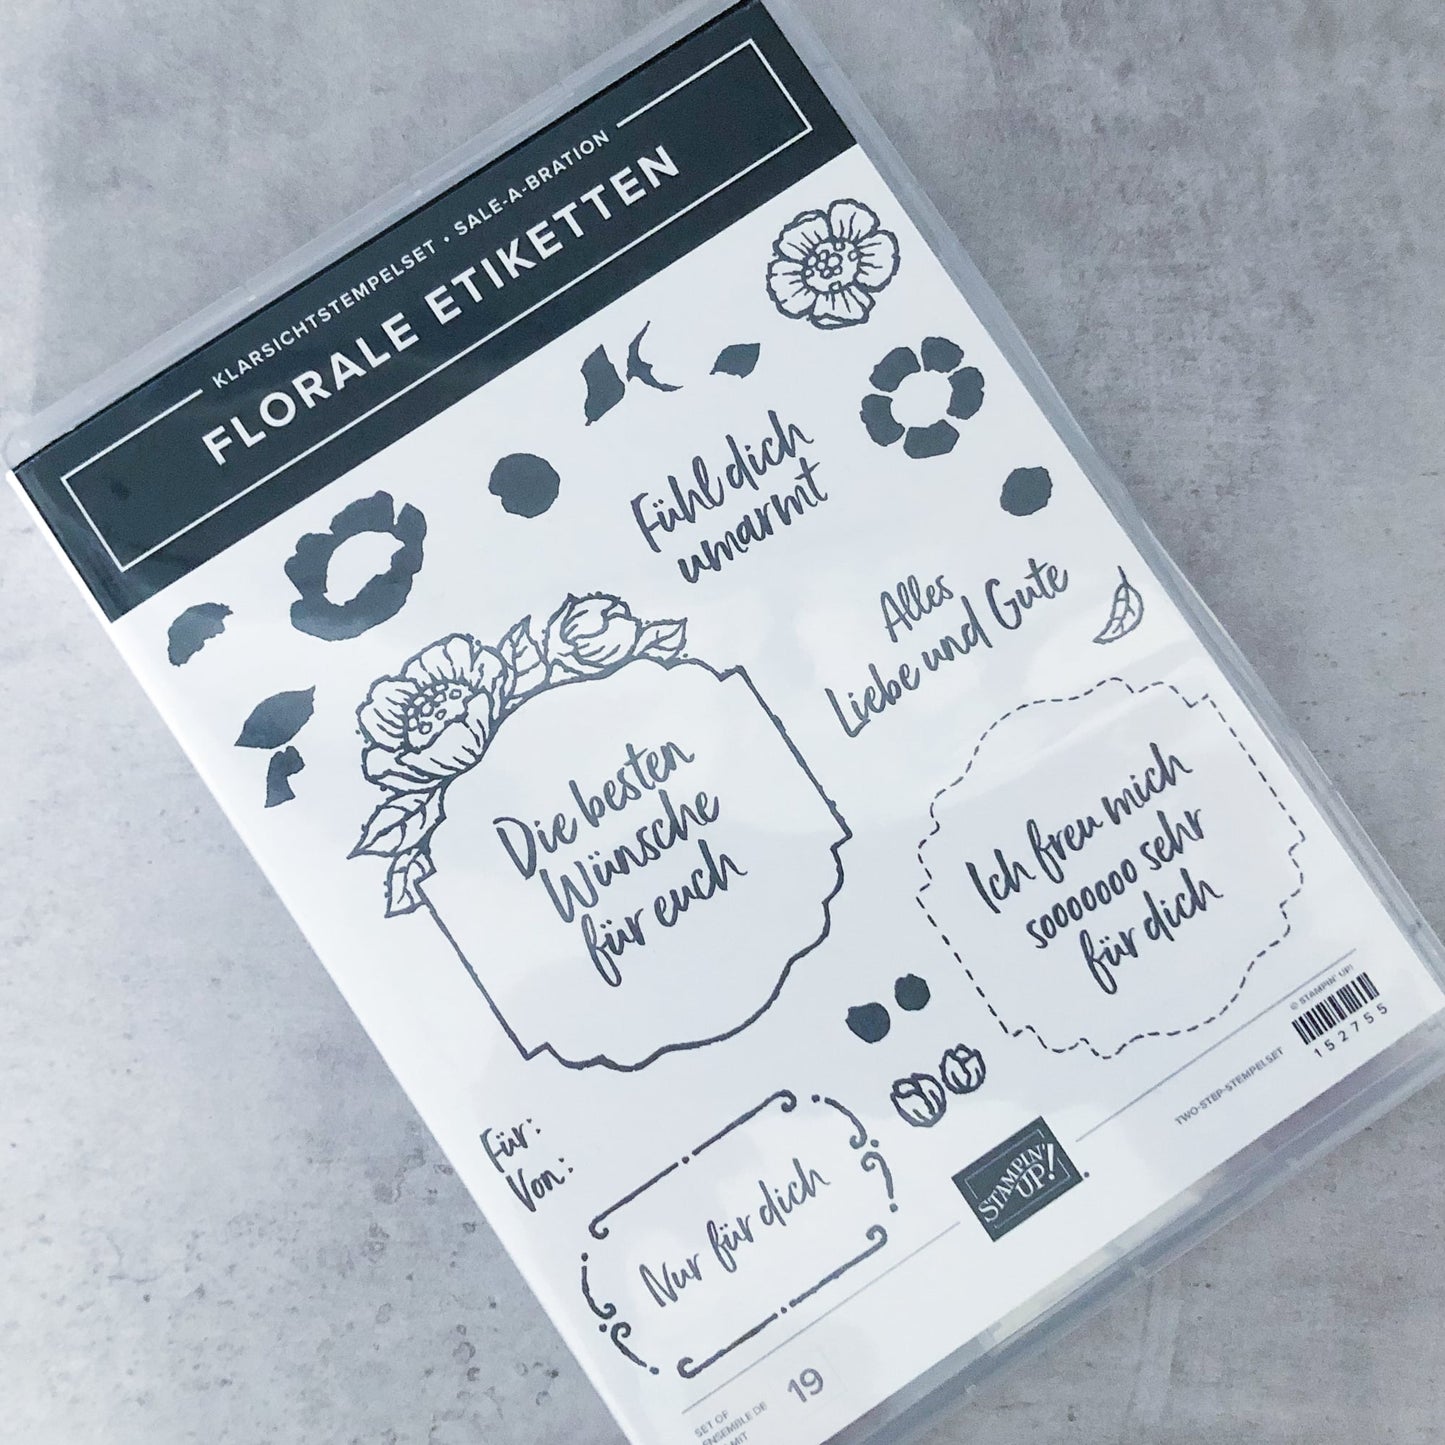 KLARSICHTSTEMPELSET • SALE-A-BRATION
FLORALE ETIKETTEN
Fühl dich
umarmt
Alles
Liebe und Gute
Die besten
Wünsche
für euch
Ich freu mich
sooooooo sehr
für dich
Für:
Von:
Nur für dich
© STAMPIN' UP!
152755
TWO-STEP-STEMPELSET
STAMPIN'
UP!
SET OF
ENSEMBLE DE
MIT
19